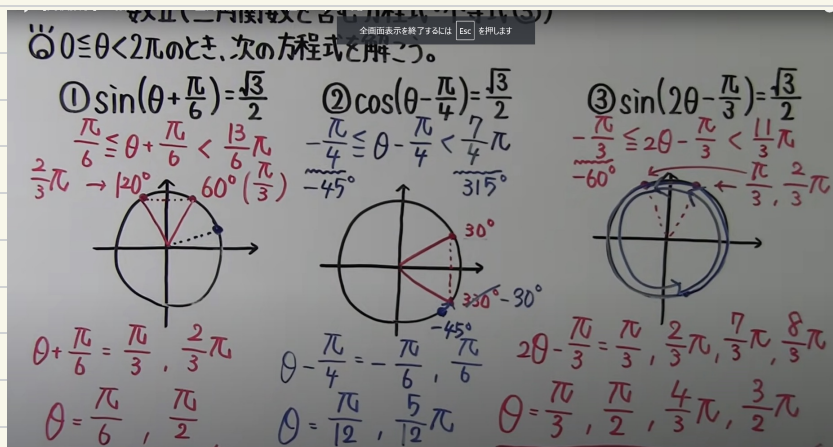 数II(三角関数を含む方程式・不等式(3))
全画面表示を終了するには Esc を押します
0≦θ<2πのとき、次の方程式を解こう。
① sin(θ+π/6)=√3/2
π/6≦θ+π/6<13/6π
2/3π → 120° 60°(π/3)
θ+π/6=π/3, 2/3π
θ=π/6, π/2
② cos(θ-π/4)=√3/2
-π/4≦θ-π/4<7/4π
-45° 315°
30°
330° -30°
-45°
θ-π/4=-π/6, π/6
θ=π/12, 5/12π
③ sin(2θ-π/3)=√3/2
-π/3≦2θ-π/3<11/3π
-60°
←π/3, 2/3π
2θ-π/3=π/3, 2/3π, 7/3π, 8/3π
θ=π/3, π/2, 4/3π, 3/2π